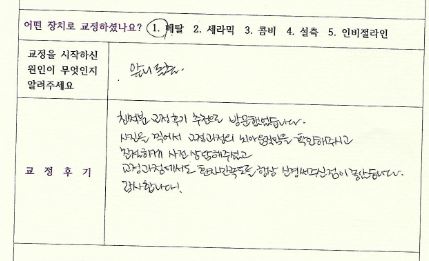 어떤 장치로 교정하셨나요? 1. 메탈 2. 세라믹 3. 콤비 4. 설측 5. 인비절라인
교정을 시작하신
원인이 무엇인지
알려주세요
앞니
친척분 교정후기 추천으로 방문했었습니다.
사진을 찍어서 교정과정의 치아움직임을 확인해주시고
꼼꼼하게 사전 상담해주셨고
교정과정에서도 환자만족도를 항상 신경써주신점이 좋았습니다.
감사합니다!
교 정 후 기